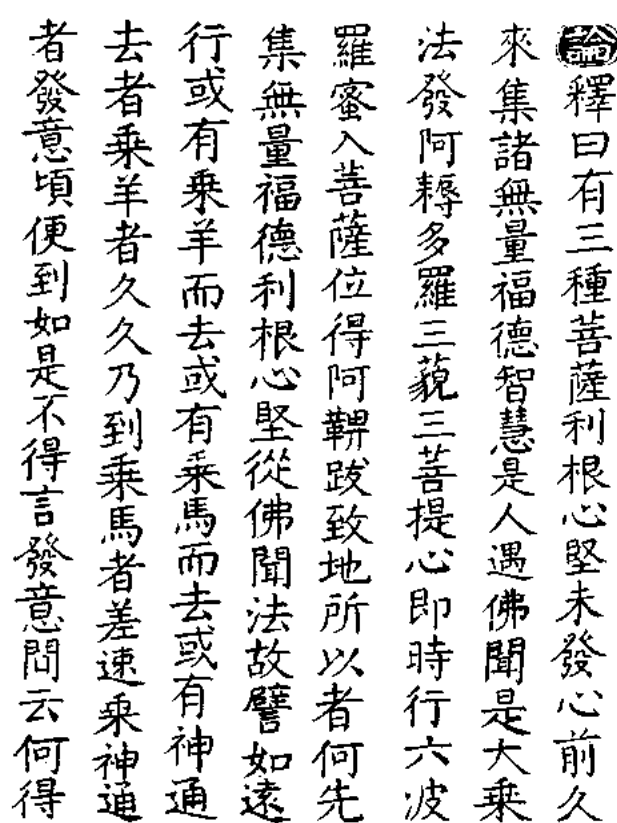 論釋曰有三種菩薩利根心堅未發心前久
來集諸無量福德智慧是人遇佛聞是大乗
法發阿耨多羅三藐三菩提心即時行六波
羅蜜入菩薩位得阿鞞跋致地所以者何先
集無量福德利根心堅從佛聞法故譬如遠
行或有乗羊而去或有乗馬而去或有神通
去者乗羊者久久乃到乗馬者差速乗神通
者發意頃便到如是不得言發意問云何得